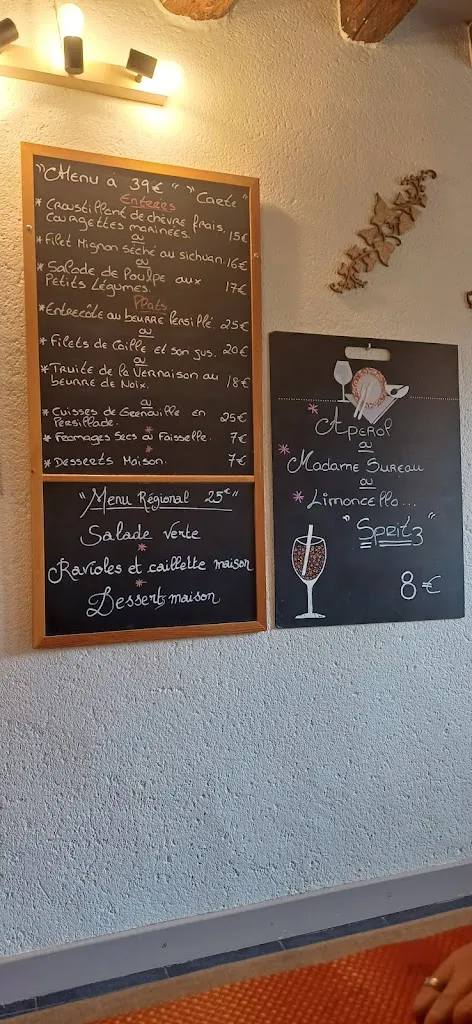 "Menu a 39€" "Carte"
Entrées
* Croustillant de chèvre frais,
courgettes marinées. 15€
ou
* Filet Mignon séché au sichuan. 16€
ou
* Salade de Poulpe aux
Petits Légumes. 17€
Plats
* Entrecôte au beurre Persillé. 25€
ou
* Filets de Caille et son jus. 20€
ou
* Truite de la Vernaison au
beurre de Noix. 18€
ou
* Cuisses de Grenouille en
Persillade. 25€
* Fromages Secs ou Faisselle. 7€
* Desserts Maison. 7€
"Menu Régional 25€"
Salade verte
*
Ravioles et caillette maison
*
Desserts maison
* Aperol
ou
* Madame Sureau
ou
* Limoncello...
"Spritz"
8€